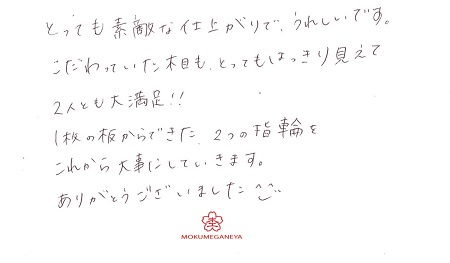 とっても素敵な仕上がりで、うれしいです。
こだわっていた木目も、とってもはっきり見えて
2人とも大満足!!
1枚の板からできた、2つの指輪を
これから大事にしていきます。
ありがとうございました
MOKUMEGANEYA